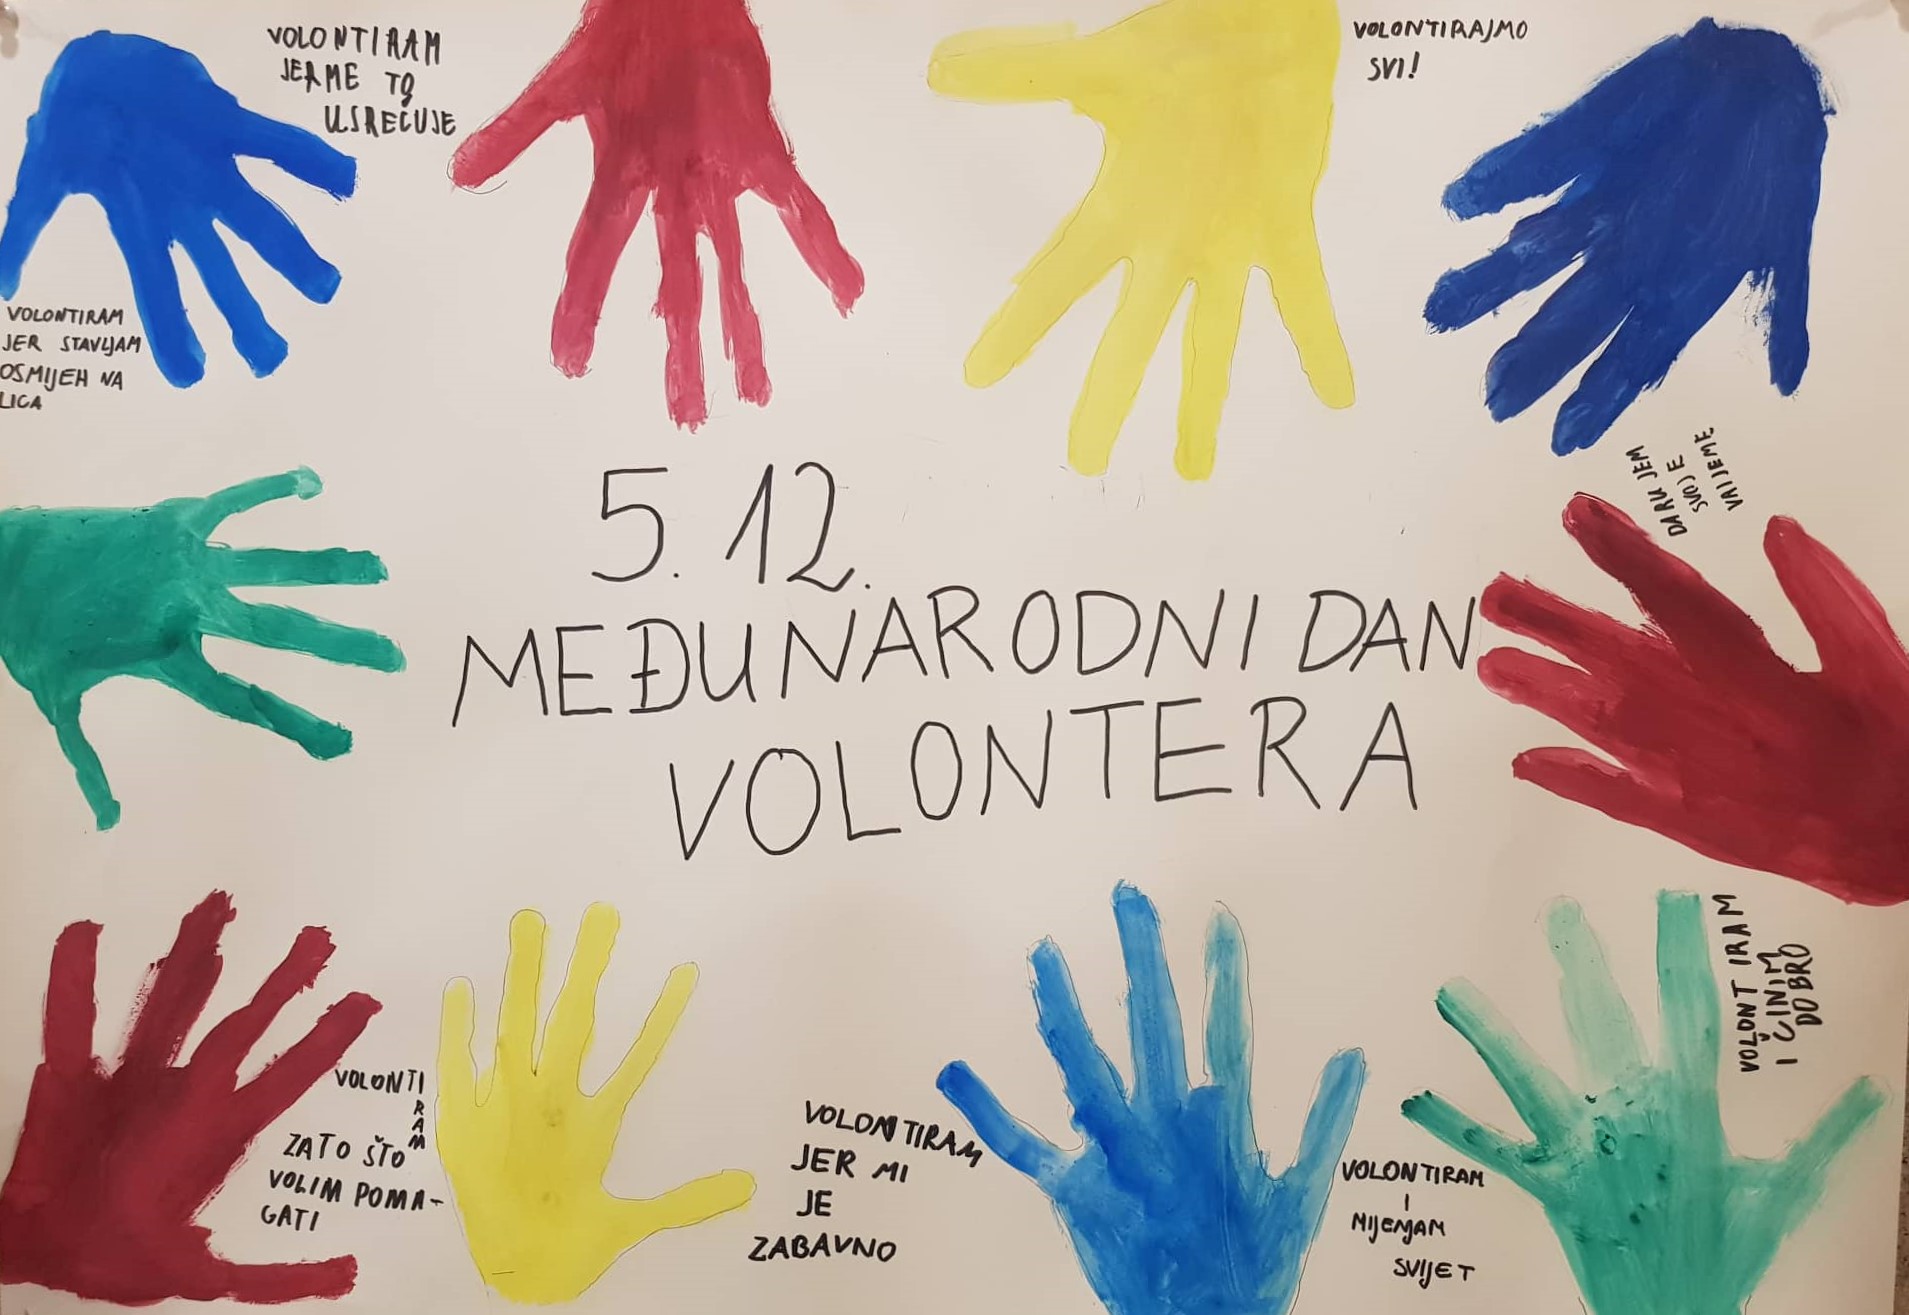 VOLONTIRAM
JER ME TO
USREĆUJE
VOLONTIRAJMO
SVI!
VOLONTIRAM
JER STAVLJAM
OSMIJEH NA
LICA
DARUJEM
SVOJE
VRIJEME.
5. 12.
MEĐUNARODNI DAN
VOLONTERA
VOLONTIRAM
ZATO ŠTO
VOLIM POMA-
GATI
VOLONTIRAM
JER MI
JE
ZABAVNO
VOLONTIRAM
I
MIJENJAM
SVIJET
VOLONTIRAM
I ČINIM
DOBRO